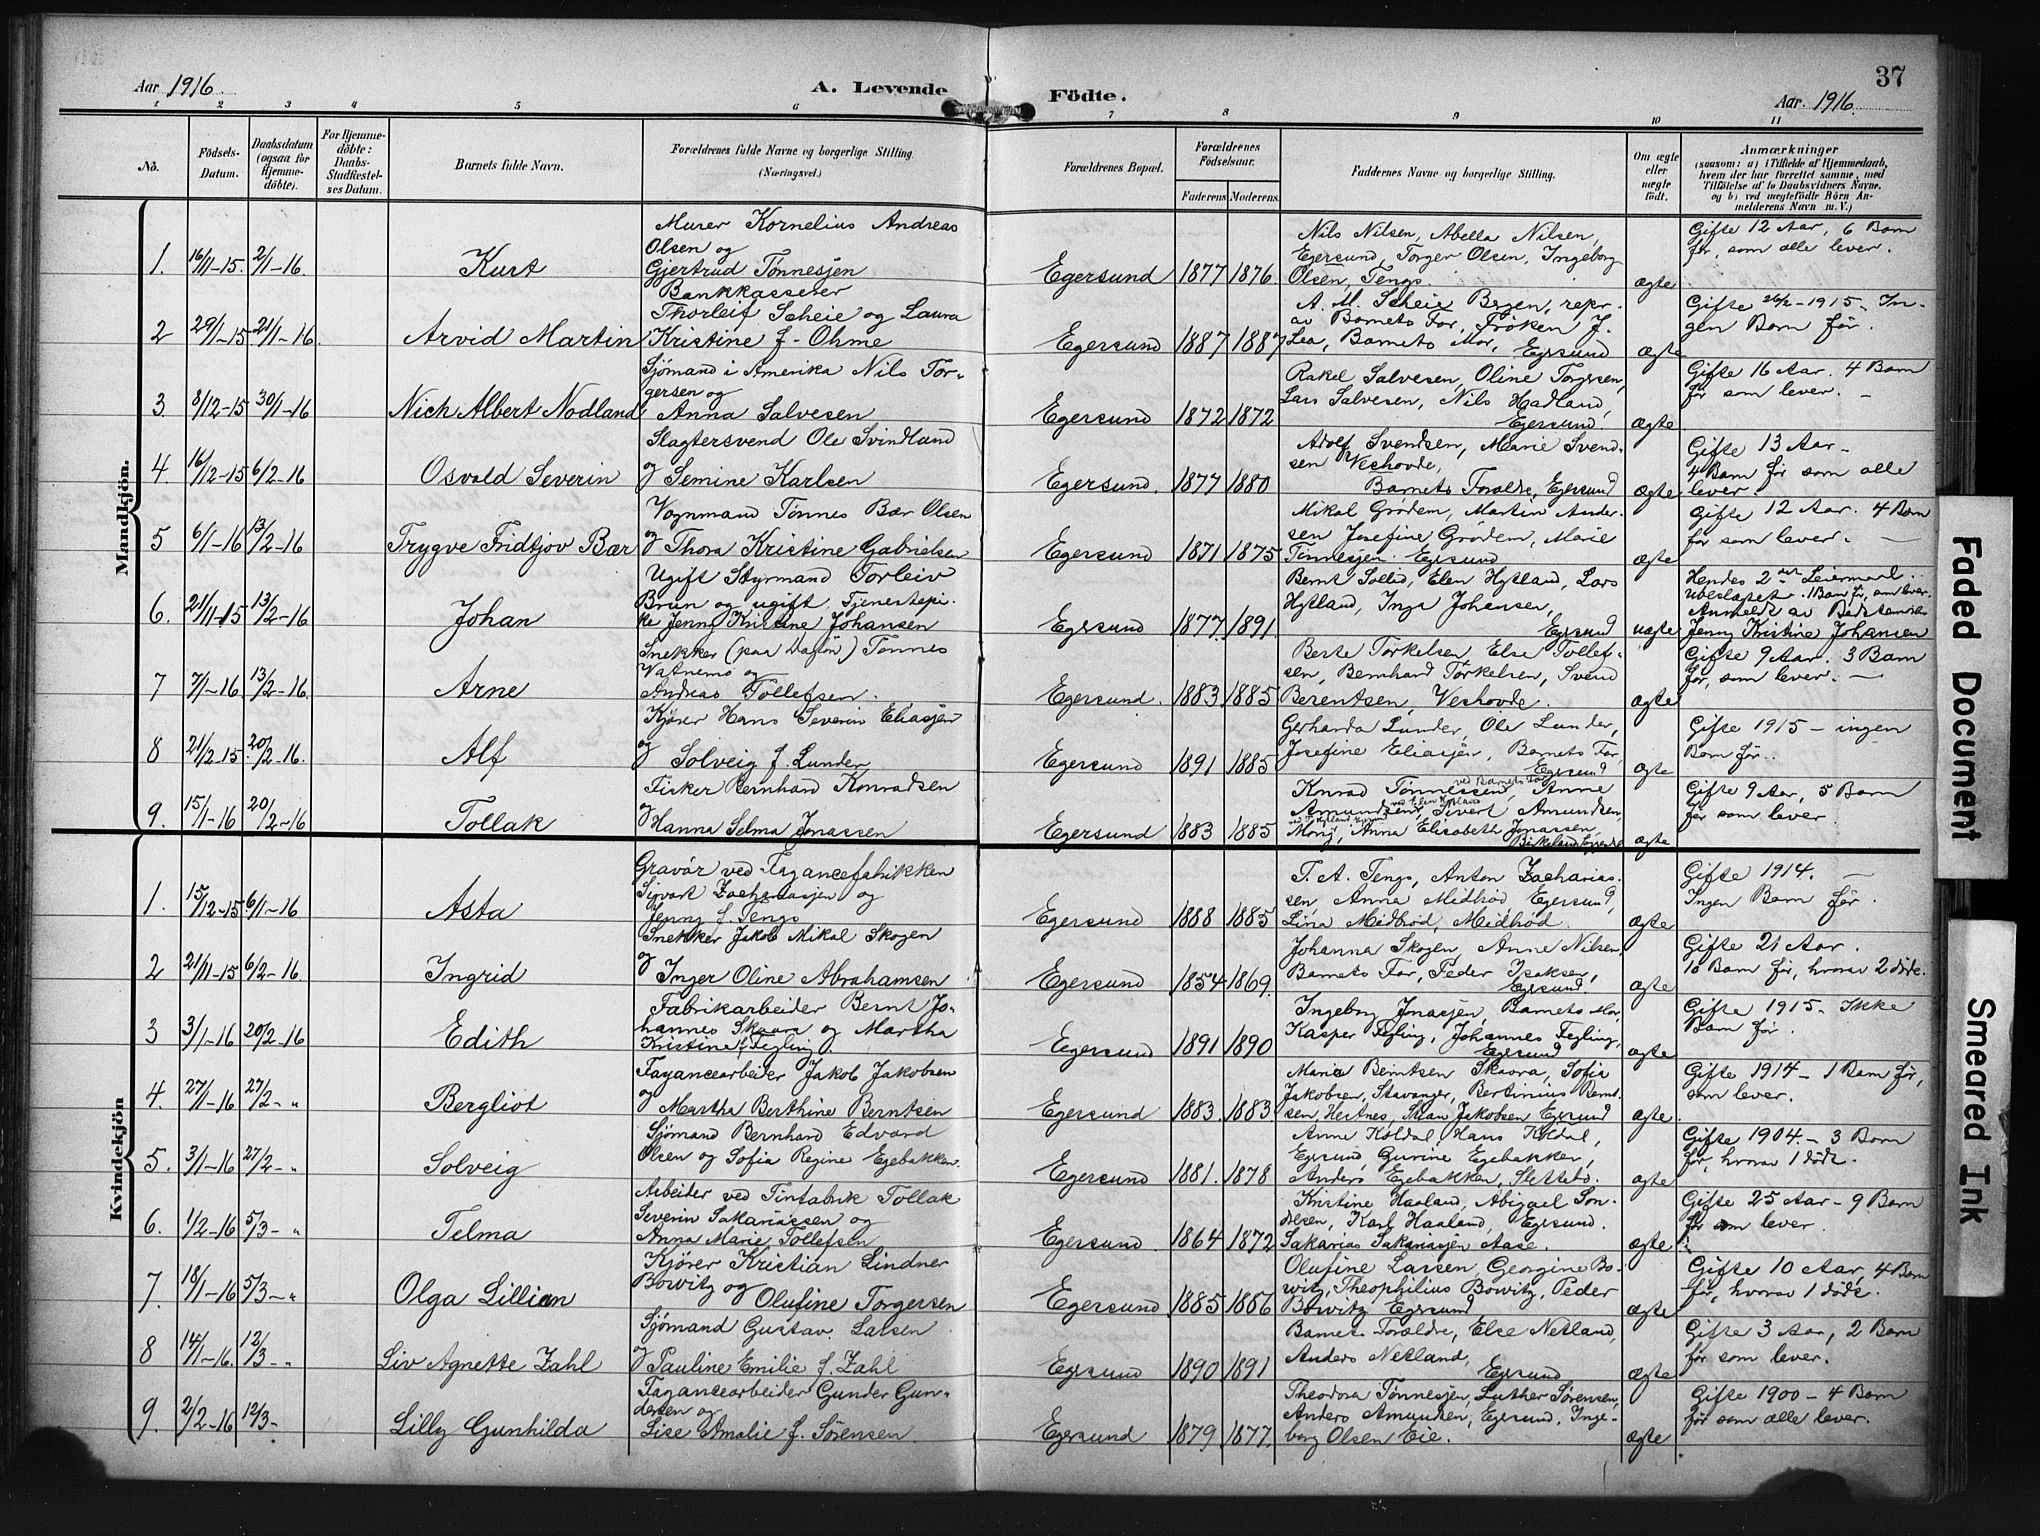 Aar 1916. A. Levende Födte. Aar. 1916. 37
1 2 3 4 5 6 7 8 9 10 11
No. Födsels-Datum. Daabsdatum (ogsaa for Hjemmedöbte). For Hjemmedöbte: Daabs-Stadfestelses Datum. Barnets fulde Navn. Forældrenes fulde Navne og borgerlige Stilling. (Næringsvei.) Forældrenes Bopæl. Forældrenes Födselsaar. Faderens Moderens. Faddernes Navne og borgerlige Stilling. Om ægte eller uægte födt. Anmærkninger (saasom: a) i Tilfælde af Hjemmedaab, hvem der har forrettet samme, med Tilföielse af to Daabsvidners Navne, og b) ved uægtefödte Börn Anmelderens Navn m. V.)
Mandkjön.
1. 16/11-15. 2/1-16 Kurt
Murer Kornelius Andreas
Olsen og
Gjertrud Tönnesjen
Egersund 1877 1876
Nils Nilsen, Abella Nilsen,
Egersund, Torger Olsen, Ingeborg
Olsen, Tengs.
ægte
Gifte 12 Aar, 6 Barn
før, som alle lever.
2 29/11-15 21/1-16. Arvid Martin
Bankkasserer
Thorleif Scheie og Laura
Kristine f. Ohme
Egersund 1887 1887
A. M. Scheie Bergen, repr.
av Barnets Far, Frøken J.
Lea, Barnets Mor,
Egersund
ægte
Gifte 26/2-1915- In-
gen Barn før.
3 8/12-15 30/1-16 Nich Albert Nodland
Sjømand i Amerika Nils Tor-
gersen og
Anna Salvesen
Egersund 1872 1872
Rakel Salvesen, Oline Torgersen,
Lars Salvesen, Nils Hadland,
Egersund.
ægte.
Gifte 16 Aar. 4 Barn
før som lever.
4. 16/12-15 6/2-16 Osvald Severin
Slagtersvend Ole Svindland
og Semine Karlsen
Egersund. 1877 1880
Adolf Svendsen, Marie Svend-
sen Veshovde,
Barnets Foraldre, Egersund
ægte
Gifte 13 Aar-
4 Barn før som alle
lever.
5 6/1-16 13/2-16 Trygve Fridtjov Bær
Vognmand Tönnes Bær Olsen
og Thora Kristine Gabrielsen
Egersund 1871 1875
Mikal Grødem, Martin Ander-
sen Josefine Grødem, Marie
Tinnesjen. Egersund
ægte
Gifte 12 Aar. 4 Barn
før som lever.
6. 21/11-15 13/2-16 Johan
Ugift Styrmand Torleiv
Brun og ugift Tjenestepi-
ke Jenny Kristine Johansen
Egersund 1877. 1891.
Bernt Sollid, Elen Hytland, Lars
Hytland, Inga Johansen,
Egersund
uægte
Hendes 2det Leiermaal
1 Barn før, som lever.
Anmeldt av
Jenny Kristine Johansen
7 7/1-16 13/2-16. Arne
Snekker (paa Dagløn) Tønnes
Vatnemo og
Andrea Tollefsen.
Egersund. 1883. 1885
Berte Torkelsen, Else Tollef-
sen, Bernhard Torkelsen, Svend
Berentsen, Veshovde.
ægte
Gifte 9 Aar. 3 Barn
før, som lever.
8 21/12-15 20/2-16. Alf
Kjører Hans Severin Eliasjen
og Solveig f. Lunder
Egersund 1891 1885
Gerharda Lunder, Ole Lunder,
Josefine Eliasjen, Barnets Far
Egersund
ægte
Gifte 1915 - ingen
Barn før.
9. 15/1-16 20/2-16 Tollak
Fisker Bernhard Konradsen
og Hanna Selma Jonassen
Egersund 1883 1885
Konrad Tønnessen ved Barnets Far, Anne
Amundsen, Sivert Amundsen,
Mong, Anna Elisabeth Jonassen,
Birkeland,
ægte
Gifte 9 Aar, 5 Barn
før som lever.
Kvindekjön
1. 15/12-15 6/1-16 Asta
Gravör ved Fayancefabrikken
Sigvart Zachariasjen og
Jenny f. Tengs
Egersund 1888 1885
T. A. Tengs, Anton Zacharias-
sen, Anna Midbød, Egersund,
Lina Midbrød, Midbrød.
ægte
Gifte 1914. -
Ingen Barn før.
2 21/11-15 6/2-16. Ingrid
Snekker Jakob Mikal Skogen
og Inger Oline Abrahamsen
Egersund 1854 1869.
Johanna Skogen, Anne Nilsen,
Barnets Far, Peder Isaksen,
Egersund.
ægte
Gifte 21 Aar.
10 Barn før, hvorav 2 døde.
3 3/1-16 20/2-16 Edith
Fabrikarbeider Bernt Jo-
hannes Skaara og Martha
Kristine f. Fegling.
Egersund 1891 1890
Ingeborg Jonasjen, Barnets Mor,
Kasper Fegling, Johannes Fegling,
Egersund
ægte
Gifte 1915- Ikke
Barn før.
4. 27/1-16 27/2-" Bergliot
Fayancearbeider Jakob Jakobsen
og Martha Berthine Berntsen
Egersund 1883. 1883.
Maria Berntsen Skaara, Sofia
Jakobsen, Stavanger, Bertinius Bernt-
sen, Hestnes, Stian Jakobsen Egersund
ægte.
Gifte 1914 - 1 Barn før,
som lever.
5. 3/1-16 27/2-" Solveig
Sjømand Bernhard Edvard
Olsen og Sofia Regine Egebakken.
Egersund 1881. 1878
Anne Koldal, Hans Koldal,
Egersund, Gurine Egebakken,
Anders Egebakken, Slettebø.
ægte
Gifte 1904. - 3 Barn
før, hvorav 1 døde.
6. 1/2-16 5/3-" Telma
Arbeider ved Tinfabrik Tollak
Severin Sakariassen og
Anna Marie Tollefsen
Egersund. 1864 1872
Kristine Haaland, Abigael Son-
dresen, Karl Haaland, Egersund.
Sakarias Sakariasjen Aase.
ægte
Gifte 25 Aar - 9 Barn
før som lever.
7. 18/1-16 5/3-" Olga Lillian
Kjører Kristian Lindner
Bowitz og Olufine Torgersen
Egersund 1885 1886
Olufine Larsen, Georgine Bo-
witz, Theophilius Bowitz, Peder
Bowitz Egersund
ægte
Gifte 10 Aar, 4 Barn
før, hvorav 1 døde.
8 14/1-16. 12/3-" Liv Agnette Zahl
Sjømand Gustav Larsen
og Pauline Emilie f. Zahl
Egersund 1890 1891
Barnets Foraldre, Else Netland,
Anders Netland,
Egersund
ægte
Gifte 3 Aar, 2 Barn
før som lever.
9. 2/2-16 12/3- Lilly Gunhilda
Fayancearbeider Gunder Gun-
dersen og
Lise Amalie f. Sørensen
Egersund 1879 1877.
Theodora Tønnesjen, Luther Sørensen,
Anders Amundsen, Egersund, Inge-
borg Olsen Eie.
ægte
Gifte 1900 - 4 Barn
før som alle lever.
Faded Document
Smeared Ink